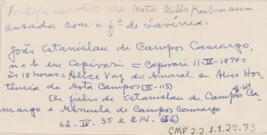 da Mota Mello Kulmann
casada com o fº de Lavínia.
João Estanislau de Campos Camargo,
n. e b. em Capivari = Capivari 11-IV-1874 =
às 18 horas = Alice Vaz do Amaral ou Alice Hor-
tência da Mota Campos (II-113)
Ele filho de Estanislau de Campos Ca-
margo e Manuela de Campos Camargo
Sd-IV-35 e 214.
CMP 2.2.1.1.27.73